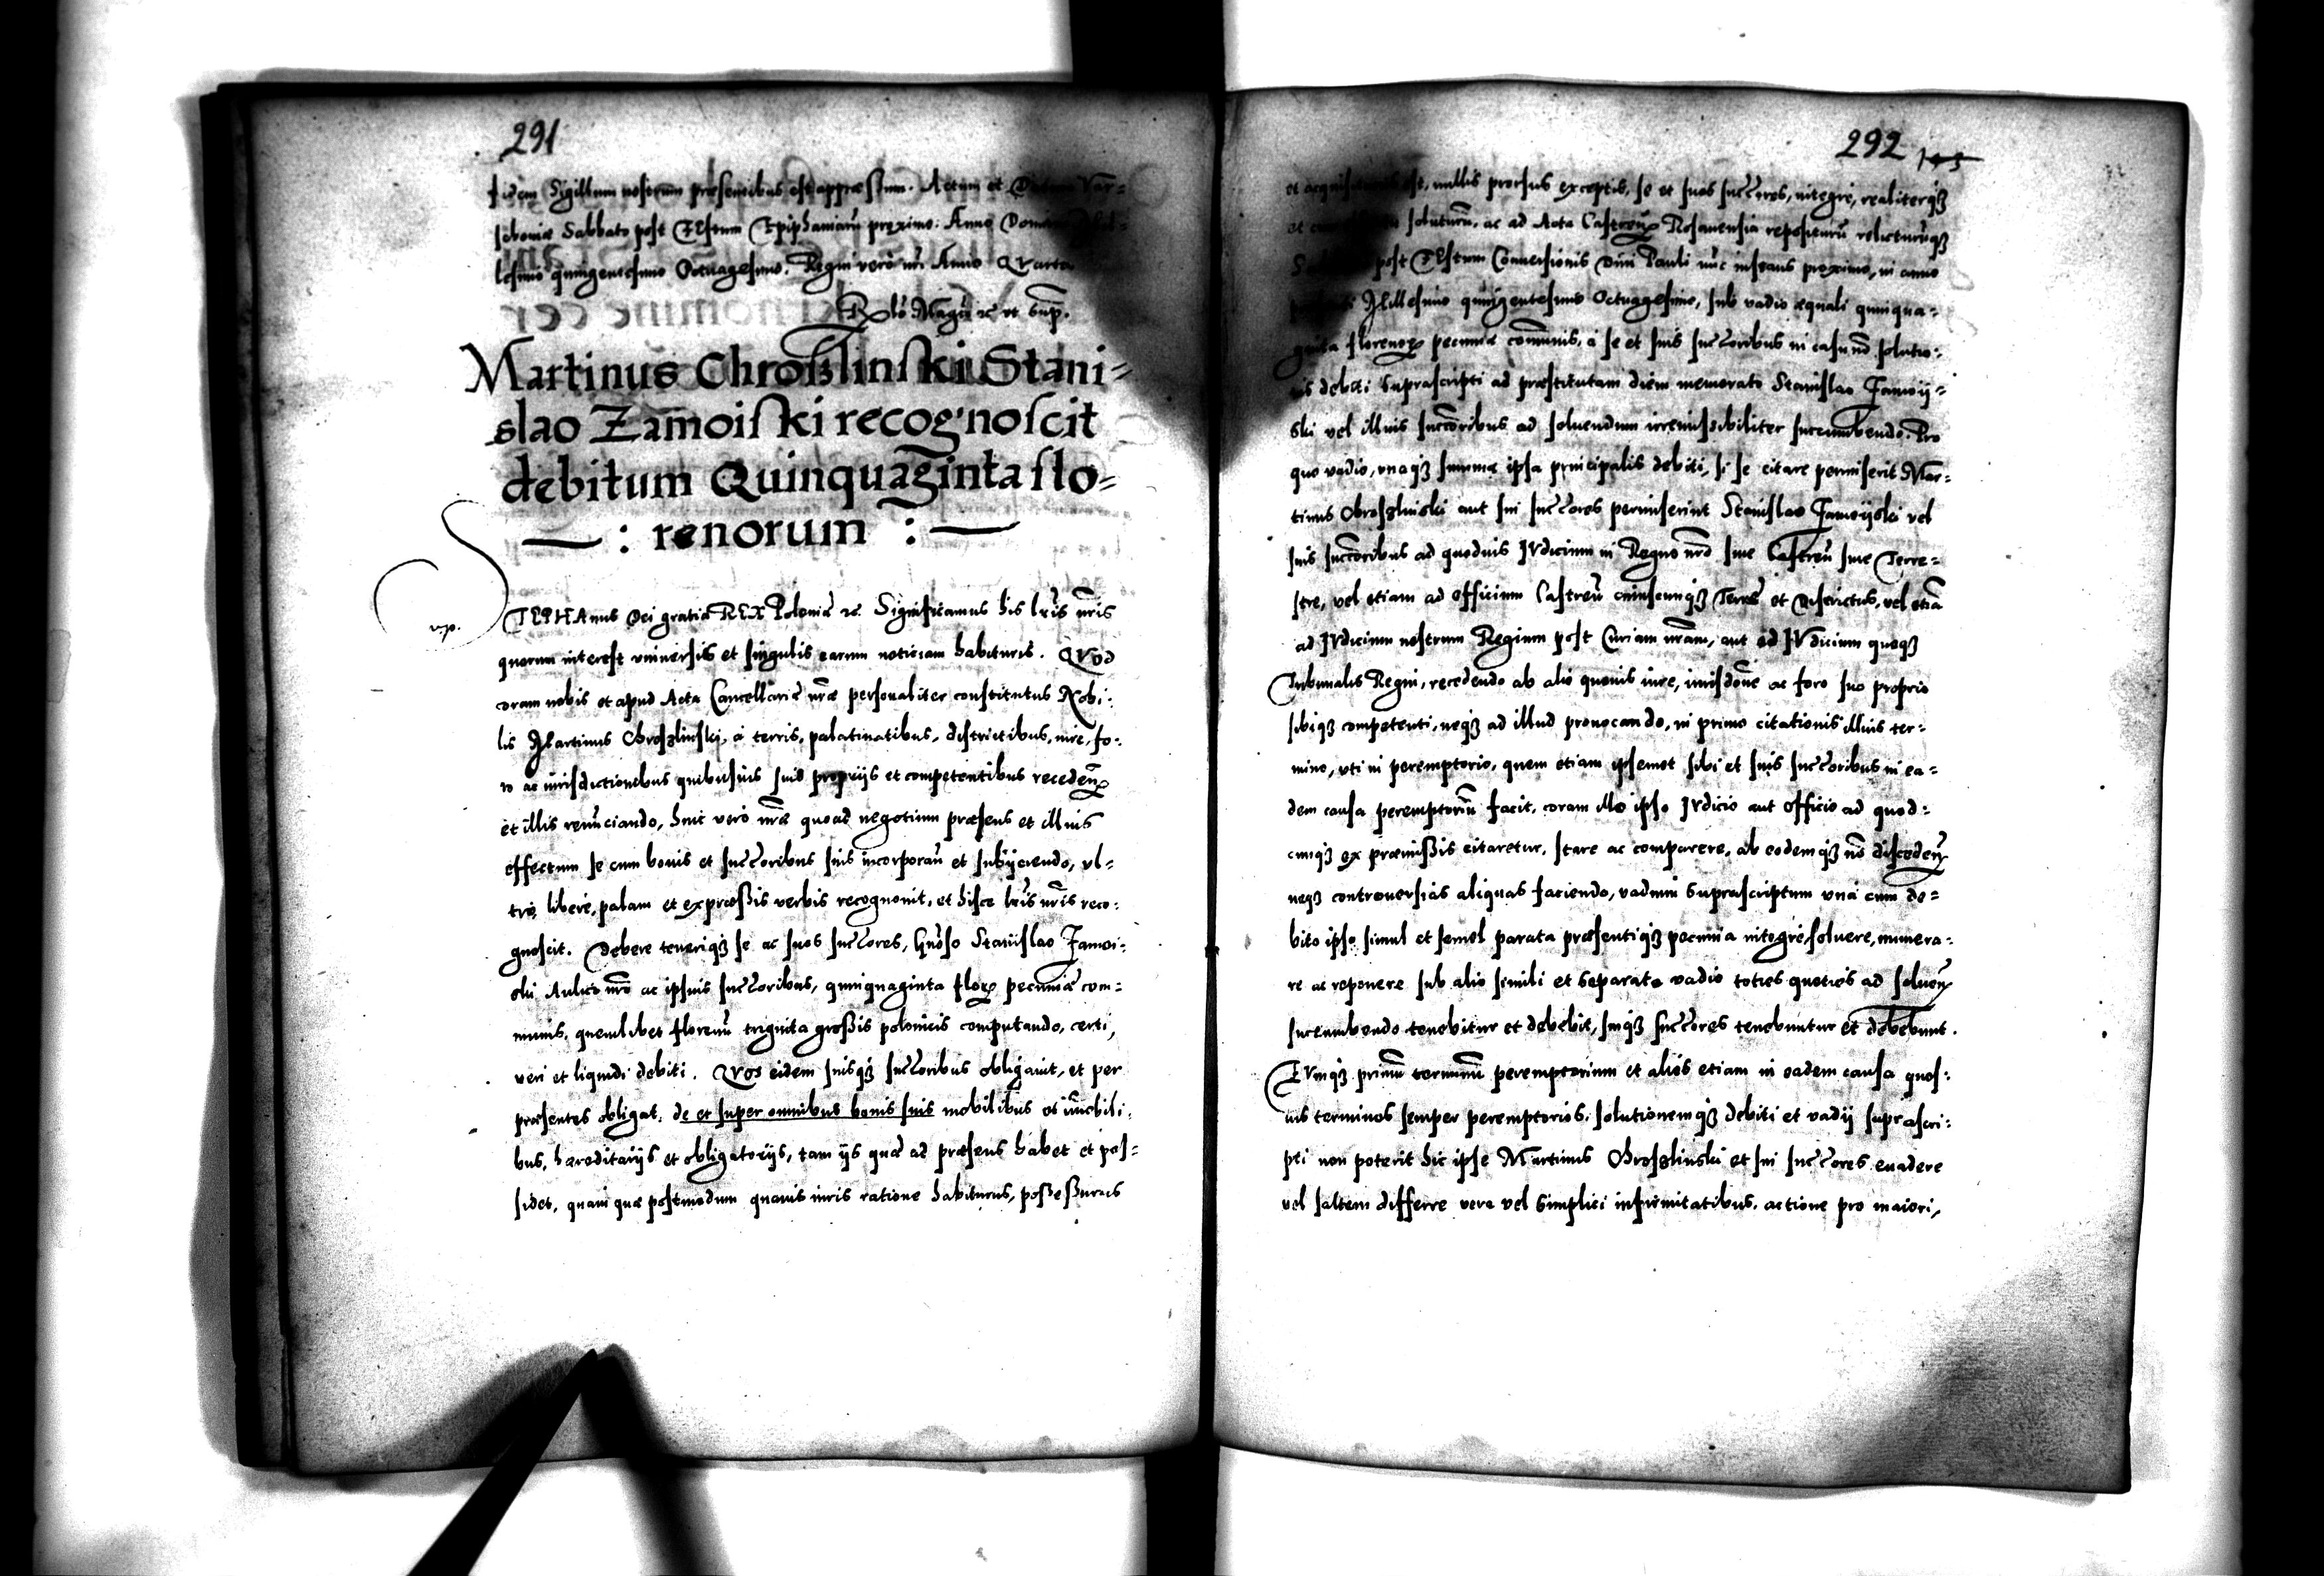 291
fidem Sigillum nostrum præsentibus est appressum. Actum et Var=
souiæ Sabbato post Festum Epiphaniarũ proximo: Anno
lesimo quingentesimo Octuagesimo. Regni verò nrĩ Anno Quarto
Martinus Chroßlinſki Stani=
slao Zamoiſki recognoſcit
debitum Quinquaginta flo=
— : renorum : —
vp.
STEPHAnus Dei gratia REX Poloniæ &c. Significamus his lrĩs nrĩs
quorum interest vniuersis et singulis earum noticiam habituris. QVod
coram nobis et apud Acta Cancellariæ nræ personaliter constitutus Nobi:
lis Martinus Chroszlinski, à terris, palatinatibus, districtibus, iure, fo:
ro ac iurisdictionibus quibusuis suis proprijs et competentibus recedeñ
et illis renũciando, huic verò nræ quoad negotium præsens et illius
effectum se cum bonis et succoribus suis incorporañ et subijciendo, vl=
tro, libere, palam et expræßis verbis recognouit, et hisce lrĩs nrĩs reco:
gnoscit. Debere teneriq3 se ac suos succores, Gnoso Stanislao Zamoi:
ski Aulico nro ac ipsius succoribus, quinquaginta floʀ pecuniæ com=
munis, quemlibet florenũ triginta großis polonicis computando, certi,
veri et liquidi debiti. QVos eidem suisq3 succoribus obligauit, et per
præsentes obligat, de et super omnibus bonis suis mobilibus et im̃obili:
bus, hæreditarijs et obligatorijs, tam ijs quæ ad præsens habet et pos=
sidet, quam quæ postmodum quouis iuris ratione habiturus, poßeßurus
292 145
est, nullis prorsus exceptis, se et suos succores, integrè, realiterq3
et soluturũ, ac ad Acta Castreñ Rosanensia repositurũ relicturũq3
post Festum Conuersionis Diui Pauli nũc instans proximo, in anno
Millesimo quingentesimo Octuagesimo, sub vadio æquali quinqua=
ginta florenoʀ pecuniæ com̃unis, à se et suis succoribus in casu nõ solutio:
nis debiti suprascripti ad præstitutam diem memorato Stanislao Zamoij=
ski vel illius succoribus ad soluendum irremissibiliter succumbendo. Pro
quo vadio, vnaq3 summa ipsa principalis debiti, si se citare permiserit Mar=
tinus Chroszlinski aut sui succores permiserint Stanislao Zamoijski vel
suis succoribus ad quoduis IVdicium in Regno nrõ siue Castreñ siue Terre=
stre, vel etiam ad officium Castreñ cuiuscunq3 Terræ et Districtus, vel etiã
ad IVdicium nostrum Regium post Curiam nrãm, aut ad IVdicium quoq3
Tribunalis Regni, recedendo ab alio quouis iure, iurisdõne ac foro suo proprio
sibiq3 competenti, neq3 ad illud prouocando, in primo citationis illius ter=
mino, vti in peremptorio, quem etiam ipsemet sibi et suis succoribus in ea=
dem causa peremptoriũ facit, coram illo ipso IVdicio aut officio ad quod=
cunq3 ex præmißis citaretur, stare ac comparere, ab eodemq3 nõ discedeñ
neq3 controuersias aliquas faciendo, vadium suprascriptum vnà cum de=
bito ipso simul et semel parata præsentiq3 pecunia integrè, soluere, numera:
re ac reponere sub alio simili et separato vadio toties quoties ad solueñ
succumbendo tenebitur et debebit, suiq3 succores tenebuntur et debebunt.
EVmq3 primũ terminũ peremptorium et alios etiam in eadem causa quos:
uis terminos semper peremptorios, solutionemq3 debiti et vadij suprascri:
pti non poterit hic ipse Martinus Chroszlinski et sui succores euadere
vel saltem differre vera vel simplici infirmitatibus, actione pro maiori,